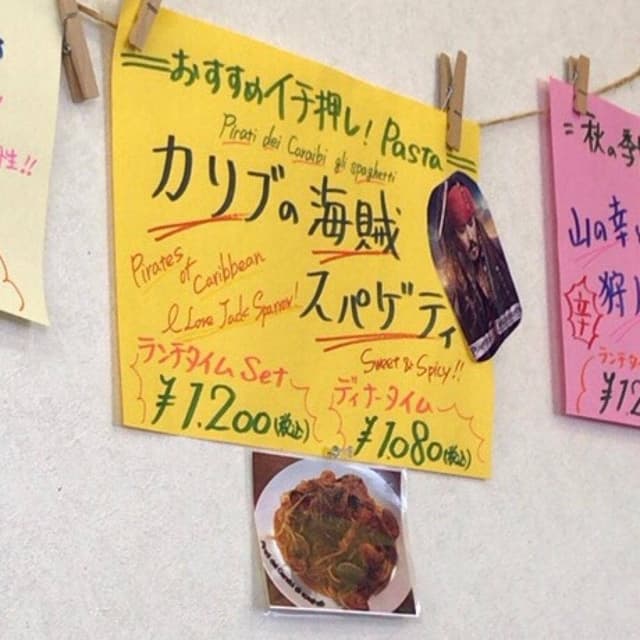 おすすめイチ押し! Pasta
Pirati dei Caraibi gli spaghetti
カリブの海賊
スパゲティ
Pirates of Caribbean
I Love Jack Sparrow!
Sweet & Spicy!!
ランチタイム Set
¥1.200(税込)
ディナータイム
¥1.080(税込)
秋の季
山の幸
狩
辛
ランチタイ
¥12
!!